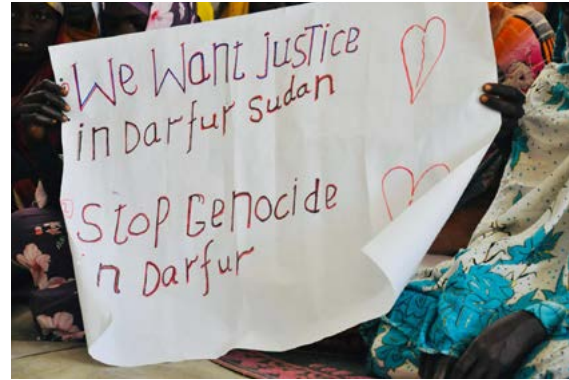 We Want justice
in Darfur Sudan
Stop Genocide
in Darfur